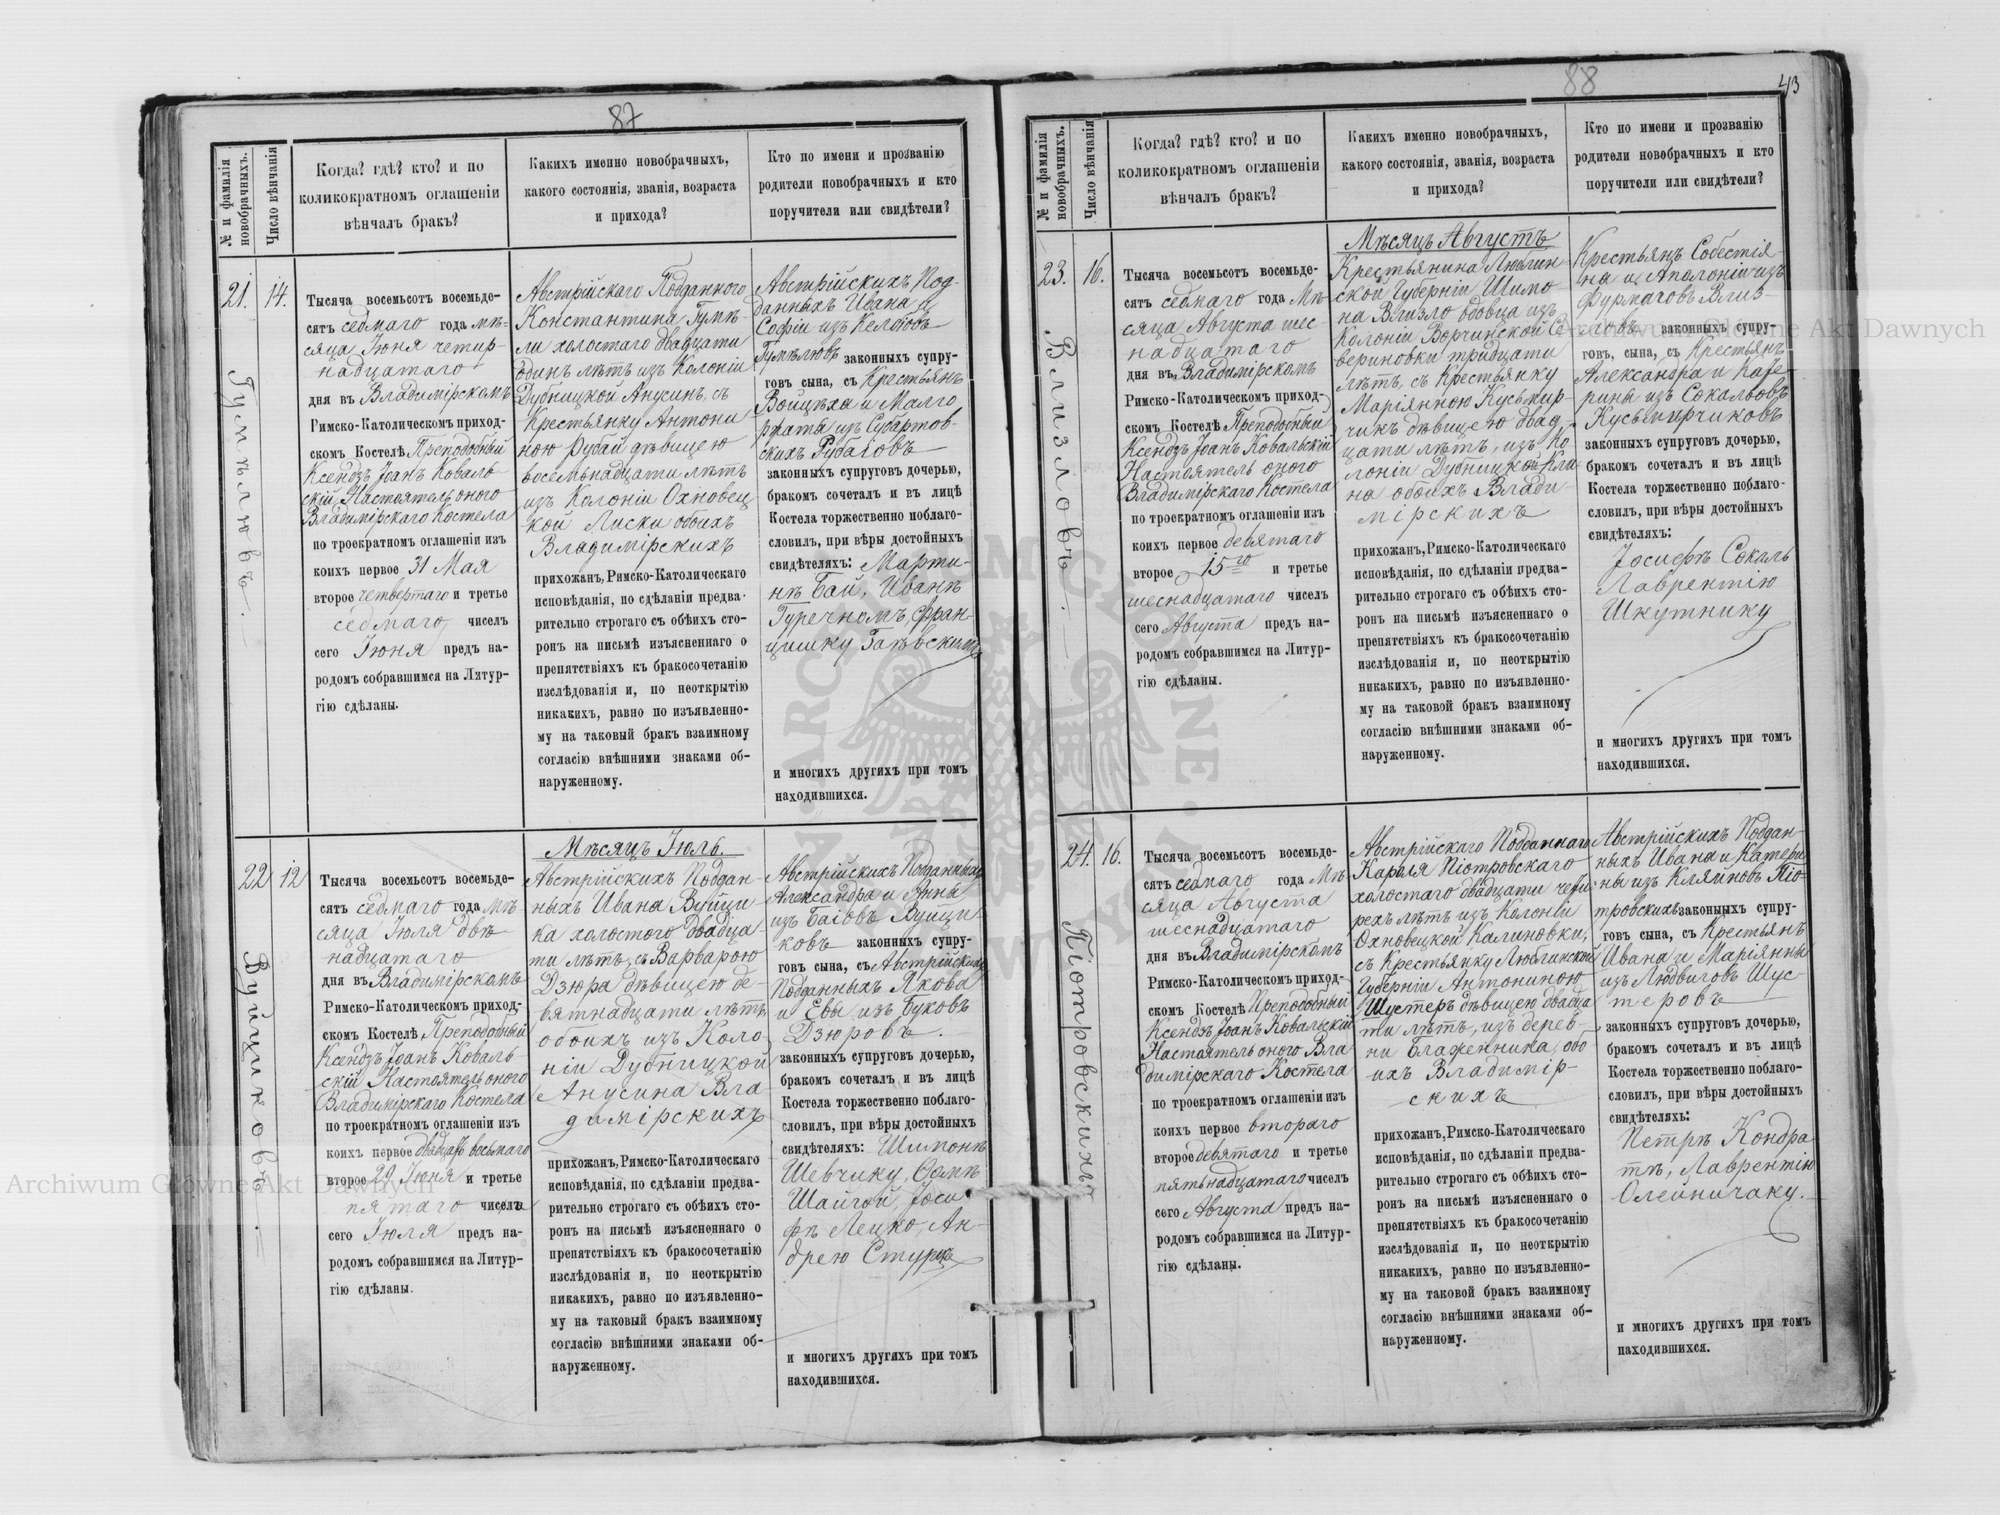 87
№ и фамилія новобрачныхъ.
Число вѣнчанія
Когда? гдѣ? кто? и по
коликократномъ оглашеніи
вѣнчалъ бракъ?
Какихъ именно новобрачныхъ,
какого состоянія, званія, возраста
и прихода?
Кто по имени и прозванію
родители новобрачныхъ и кто
поручители или свидѣтели?
21.
14.
Гумѣлювъ.
Тысяча восемьсотъ восемьде-
сятъ седмаго года мѣ-
сяца Іюня четыр-
надцатаго
дня въ Владимірскомъ
Римско-Католическомъ приход-
скомъ Костелѣ, Преподобный
Ксендзъ Іоанъ Коваль-
скій, Настоятель оного
Владимірскаго Костела
по троекратномъ оглашеніи изъ
коихъ первое 31 Мая
второе четвертаго и третье
седмаго чиселъ
сего Іюня предъ на-
родомъ собравшимся на Литур-
гію сдѣланы.
Австрійскаго Подданного
Константина Гумѣ-
ли холостаго двадцати
одинъ лѣтъ изъ Колоніи
Дубницкой Анусин, съ
Крестьянку Антони
ною Рубай дѣвицею
восемьнадцати лѣтъ
изъ Колоніи Охновец
кой Лиски обоихъ
Владимірскихъ
прихожанъ, Римско-Католическаго
исповѣданія, по сдѣланіи предва-
рительно строгаго съ обѣихъ сто-
ронъ на письмѣ изъясненнаго о
препятствіяхъ къ бракосочетанію
изслѣдованія и, по неоткрытію
никакихъ, равно по изъявленно-
му на таковый бракъ взаимному
согласію внѣшними знаками об-
наруженному.
Австрійскихъ Под-
данныхъ Ивана и
Софіи изъ
Гумѣлювъ законныхъ супру-
говъ сына, съ Крестьянъ
Войцѣха и Малго
ржаты изъ Субартов-
скихъ Рубаіовъ
законныхъ супруговъ дочерью,
бракомъ сочеталъ и въ лицѣ
Костела торжественно поблаго-
словилъ, при вѣры достойныхъ
свидѣтеляхъ: Марти-
нѣ Бай, Иванѣ
Гуречномъ, Фран-
цишку
и многихъ другихъ при томъ
находившихся.
22
12
Вуйциковъ.
Тысяча восемьсотъ восемьде-
сятъ седмаго года мѣ-
сяца Іюля двѣ
надцатаго
дня въ Владимірскомъ
Римско-Католическомъ приход-
скомъ Костелѣ Преподобный
Ксендзъ Іоанъ Коваль-
скій Настоятель оного
Владимірскаго Костела
по троекратномъ оглашеніи изъ
коихъ первое двадцать восьмаго
второе 29 Іюня и третье
пятаго чиселъ
сего Іюля предъ на-
родомъ собравшимся на Литур-
гію сдѣланы.
Мѣсяцъ Іюль.
Австрійскихъ Поддан-
ныхъ Ивана Вуйци
ка холостого двадца-
ти лѣтъ, съ Варварою
Дзюра дѣвицею де-
вятнадцати лѣтъ
обоихъ изъ Коло-
ніи Дубницкой
Анусина Вла
димірскихъ
прихожанъ, Римско-Католическаго
исповѣданія, по сдѣланіи предва-
рительно строгаго съ обѣихъ сто-
ронъ на письмѣ изъясненнаго о
препятствіяхъ къ бракосочетанію
изслѣдованія и, по неоткрытію
никакихъ, равно по изъявленно-
му на таковый бракъ взаимному
согласію внѣшними знаками об-
наруженному.
Австрійскихъ Подданныхъ
Александра и Анны
изъ Баіовъ Вуйци-
ковъ законныхъ супру-
говъ сына, съ Австрійскихъ
Подданныхъ Якова
и Евы изъ Буковъ
Дзюровъ.
законныхъ супруговъ дочерью,
бракомъ сочеталъ и въ лицѣ
Костела торжественно поблаго-
словилъ, при вѣры достойныхъ
свидѣтеляхъ: Шимонѣ
Шевчику,
Шайгой, Іоси-
фѣ Лецко, Ан-
дрею
и многихъ другихъ при томъ
находившихся.
88
43
№ и фамилія новобрачныхъ.
Число вѣнчанія
Когда? гдѣ? кто? и по
коликократномъ оглашеніи
вѣнчалъ бракъ?
Какихъ именно новобрачныхъ,
какого состоянія, званія, возраста
и прихода?
Кто по имени и прозванію
родители новобрачныхъ и кто
поручители или свидѣтели?
23.
16.
Влизловъ.
Тысяча восемьсотъ восемьде-
сятъ седмаго года Мѣ
сяца Августа шес-
надцатаго
дня въ Владимірскомъ
Римско-Католическомъ приход-
скомъ Костелѣ Преподобный
Ксендзъ Іоанъ Ковальскій
Настоятель оного
Владимірскаго Костела
по троекратномъ оглашеніи изъ
коихъ первое девятаго
второе 15го и третье
шеснадцатаго чиселъ
сего Августа предъ на-
родомъ собравшимся на Литур-
гію сдѣланы.
Мѣсяцъ Августъ
Крестьянина Люблин-
ской Губерніи Шимо-
на Влизло вдовца изъ
Колоніи Ворчинской Се-
вериновки тридцати
лѣтъ, съ Крестьянку
Маріянною Кусьмир-
чикъ дѣвицею двад
цати лѣтъ, изъ Ко
лоніи Дубницкой Кли
на обоихъ Влади-
мірскихъ
прихожанъ, Римско-Католическаго
исповѣданія, по сдѣланіи предва-
рительно строгаго съ обѣихъ сто-
ронъ на письмѣ изъясненнаго о
препятствіяхъ къ бракосочетанію
изслѣдованія и, по неоткрытію
никакихъ, равно по изъявленно-
му на таковой бракъ взаимному
согласію внѣшними знаками об-
наруженному.
Крестьянъ Собестія-
на и Аполоніи изъ
Фурмаговъ Влиз-
ловъ законныхъ супру-
говъ, сына, съ Крестьянъ
Александра и Кате-
рины изъ Сокаловъ
Кусьмирчиковъ
законныхъ супруговъ дочерью,
бракомъ сочеталъ и въ лицѣ
Костела торжественно поблаго-
словилъ, при вѣры достойныхъ
свидѣтеляхъ:
Іосифѣ Сокаль
Лаврентію
Шкутнику
и многихъ другихъ при томъ
находившихся.
24.
16.
Піотровскихъ
Тысяча восемьсотъ восемьде-
сятъ седмаго года Мѣ
сяца Августа
шеснадцатаго
дня въ Владимірскомъ
Римско-Католическомъ приход-
скомъ Костелѣ Преподобный
Ксендзъ Іоанъ Ковальскій
Настоятель оного Вла
димірскаго Костела
по троекратномъ оглашеніи изъ
коихъ первое втораго
второе девятаго и третье
пятьнадцатаго чиселъ
сего Августа предъ на-
родомъ собравшимся на Литур-
гію сдѣланы.
Австрійскаго Подданнаго
Кароля Піотровскаго
холостаго двадцати четы-
рехъ лѣтъ изъ Колоніи
Охновецкой Калиновки,
съ Крестьянку Люблинской
Губерніи Антониною
Шустеръ дѣвицею двадца
ти лѣтъ, изъ дерев-
ни Блаженника, обо
ихъ Владимір-
скихъ
прихожанъ, Римско-Католическаго
исповѣданія, по сдѣланіи предва-
рительно строгаго съ обѣихъ сто-
ронъ на письмѣ изъясненнаго о
препятствіяхъ къ бракосочетанію
изслѣдованія и, по неоткрытію
никакихъ, равно по изъявленно-
му на таковой бракъ взаимному
согласію внѣшними знаками об-
наруженному.
Австрійскихъ Поддан-
ныхъ Ивана и Катери
ны изъ Кляйновъ Піо-
тровскихъ законныхъ супру-
говъ сына, съ Крестьянъ
Ивана и Маріянны
изъ Людвиговъ Шус-
теровъ
законныхъ супруговъ дочерью,
бракомъ сочеталъ и въ лицѣ
Костела торжественно поблаго-
словилъ, при вѣры достойныхъ
свидѣтеляхъ:
Петрѣ Кондра
тѣ, Лаврентію
Олейничаку.
и многихъ другихъ при томъ
находившихся.
Archiwum Główne Akt Dawnych
Archiwum Główne Akt Dawnych